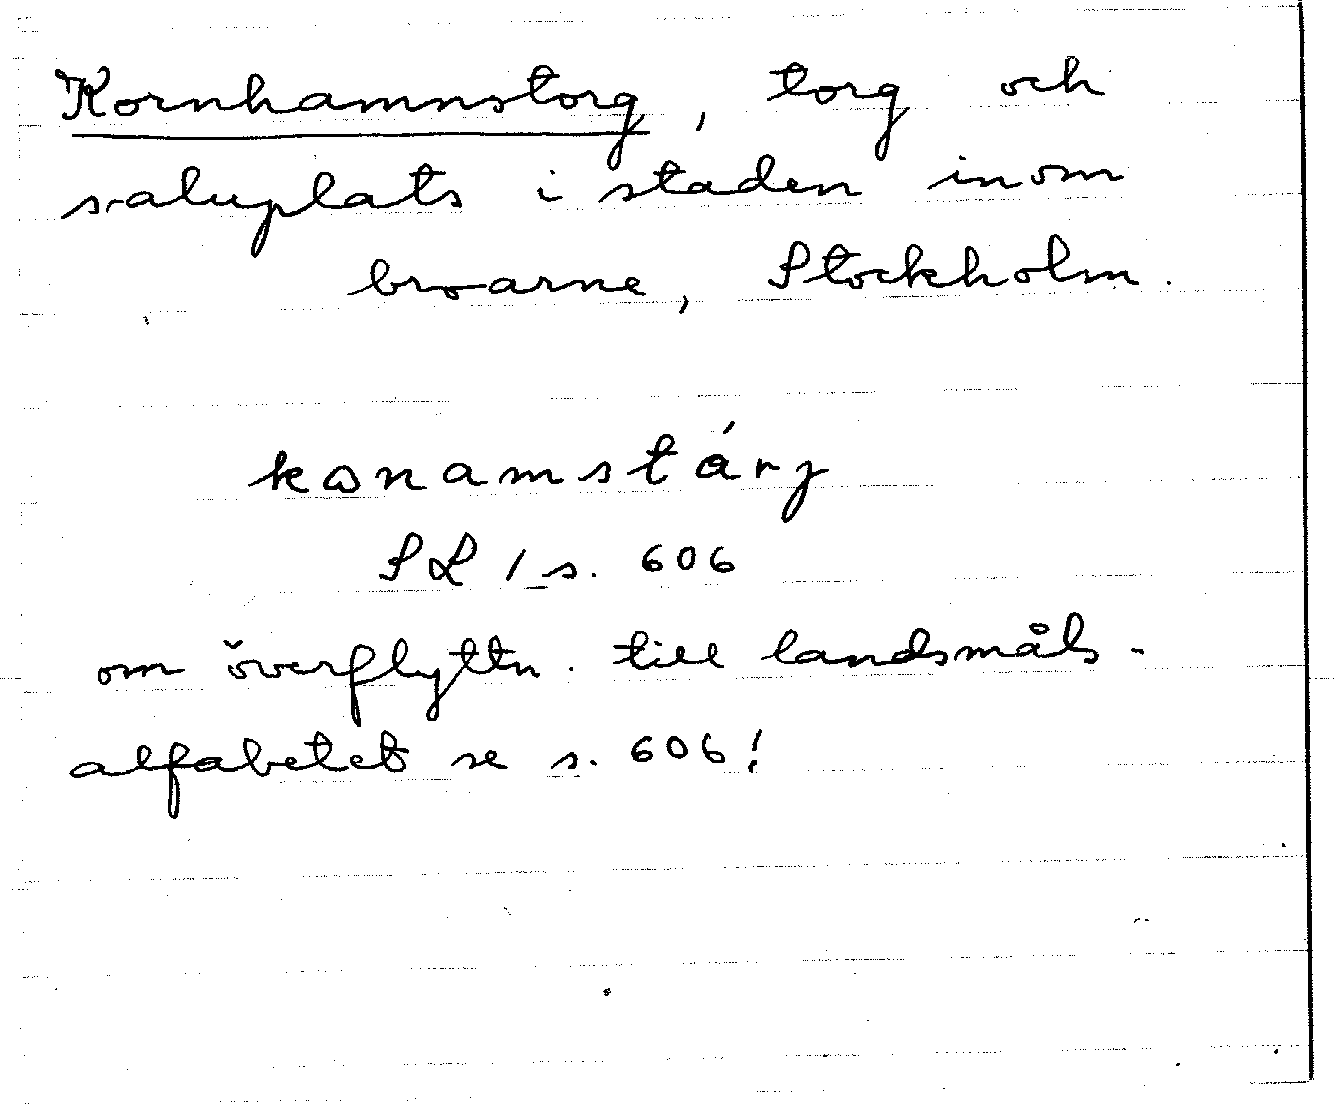 Kornhamnstorg, torg och
saluplats i staden inom
broarne, Stockholm.
kωnamstárj
SL 1 s. 606
om överflyttn. till landsmåls-
alfabetet se s. 606!